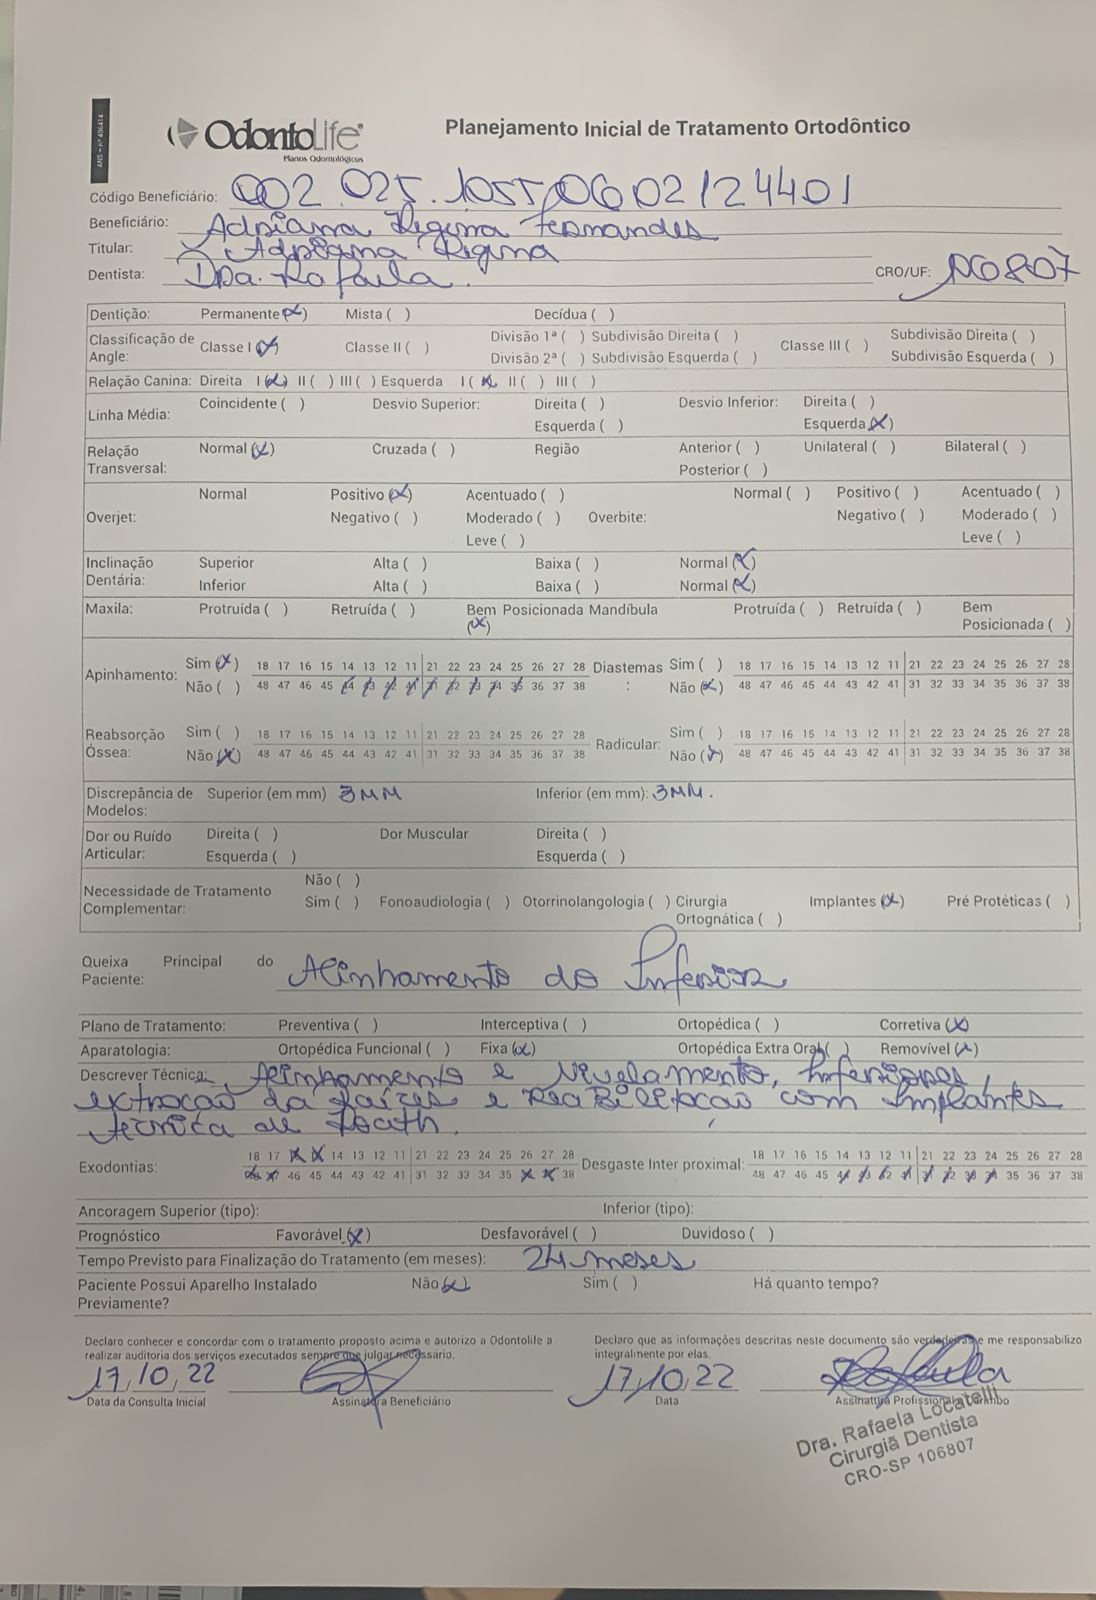 ANS - nº 406414
OdontoLife®
Planos Odontológicos
Planejamento Inicial de Tratamento Ortodôntico
Código Beneficiário: 002.025.1055.0602/24401
Beneficiário: Adriana Regina Fernandes
Titular: X Adriana Regina
Dentista: Dra. Rafaela. CRO/UF: 106807
Dentição: Permanente (X) Mista ( ) Decídua ( )
Classificação de Angle: Classe I (X) Classe II ( ) Divisão 1ª ( ) Subdivisão Direita ( ) Classe III ( ) Subdivisão Direita ( )
Divisão 2ª ( ) Subdivisão Esquerda ( ) Subdivisão Esquerda ( )
Relação Canina: Direita I (X) II ( ) III ( ) Esquerda I (X) II ( ) III ( )
Linha Média: Coincidente ( ) Desvio Superior: Direita ( ) Desvio Inferior: Direita ( )
Esquerda ( ) Esquerda (X)
Relação Transversal: Normal (X) Cruzada ( ) Região Anterior ( ) Unilateral ( ) Bilateral ( )
Posterior ( )
Overjet: Normal Positivo (X) Acentuado ( ) Overbite: Normal ( ) Positivo ( ) Acentuado ( )
Negativo ( ) Moderado ( ) Negativo ( ) Moderado ( )
Leve ( ) Leve ( )
Inclinação Dentária: Superior Alta ( ) Baixa ( ) Normal (X)
Inferior Alta ( ) Baixa ( ) Normal (X)
Maxila: Protruída ( ) Retruída ( ) Bem Posicionada (X) Mandíbula Protruída ( ) Retruída ( ) Bem Posicionada ( )
Apinhamento: Sim (X) 18 17 16 15 14 13 12 11 21 22 23 24 25 26 27 28 Diastemas: Sim ( ) 18 17 16 15 14 13 12 11 21 22 23 24 25 26 27 28
Não ( ) 48 47 46 45 44 43 42 41 31 32 33 34 35 36 37 38 Não (X) 48 47 46 45 44 43 42 41 31 32 33 34 35 36 37 38
Reabsorção Óssea: Sim ( ) 18 17 16 15 14 13 12 11 21 22 23 24 25 26 27 28 Radicular: Sim ( ) 18 17 16 15 14 13 12 11 21 22 23 24 25 26 27 28
Não (X) 48 47 46 45 44 43 42 41 31 32 33 34 35 36 37 38 Não (X) 48 47 46 45 44 43 42 41 31 32 33 34 35 36 37 38
Discrepância de Modelos: Superior (em mm) 3MM Inferior (em mm): 3MM.
Dor ou Ruído Articular: Direita ( ) Dor Muscular Direita ( )
Esquerda ( ) Esquerda ( )
Necessidade de Tratamento Complementar: Não ( )
Sim ( ) Fonoaudiologia ( ) Otorrinolangologia ( ) Cirurgia Ortognática ( ) Implantes (X) Pré Protéticas ( )
Queixa Principal do Paciente: Alinhamento do Inferior
Plano de Tratamento: Preventiva ( ) Interceptiva ( ) Ortopédica ( ) Corretiva (X)
Aparatologia: Ortopédica Funcional ( ) Fixa (X) Ortopédica Extra Oral ( ) Removível (X)
Descrever Técnica: Alinhamento e Nivelamento, Inferiores,
extração da raízes e reabilitação com Implantes
técnica de Roath.
Exodontias: 18 17 16 15 14 13 12 11 21 22 23 24 25 26 27 28 Desgaste Inter proximal: 18 17 16 15 14 13 12 11 21 22 23 24 25 26 27 28
48 47 46 45 44 43 42 41 31 32 33 34 35 36 37 38 48 47 46 45 44 43 42 41 31 32 33 34 35 36 37 38
Ancoragem Superior (tipo): Inferior (tipo):
Prognóstico Favorável (X) Desfavorável ( ) Duvidoso ( )
Tempo Previsto para Finalização do Tratamento (em meses): 24 meses
Paciente Possui Aparelho Instalado Previamente? Não (X) Sim ( ) Há quanto tempo?
Declaro conhecer e concordar com o tratamento proposto acima e autorizo a Odontolife a
realizar auditoria dos serviços executados sempre que julgar necessário.
Declaro que as informações descritas neste documento são verdadeiras e me responsabilizo
integralmente por elas.
17/10/22 17/10/22 Rafaela
Data da Consulta Inicial Assinatura Beneficiário Data Assinatura Profissional e Carimbo
Dra. Rafaela Locatelli
Cirurgiã Dentista
CRO-SP 106807